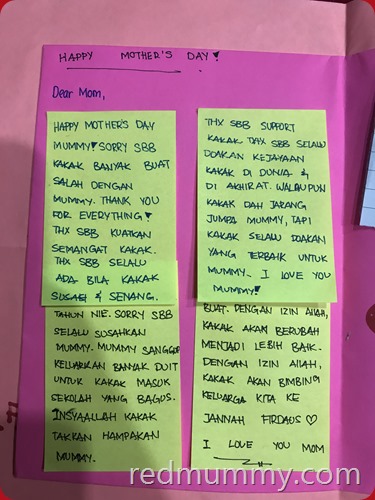 HAPPY MOTHER'S DAY!
Dear Mom,
HAPPY MOTHER'S DAY
MUMMY! SORRY SBB
KAKAK BANYAK BUAT
SALAH DENGAN
MUMMY. THANK YOU
FOR EVERYTHING!
THX SBB KUATKAN
SEMANGAT KAKAK.
THX SBB SELALU
ADA BILA KAKAK
SUSAH & SENANG.
TAHUN NIE. SORRY SBB
SELALU SUSAHKAN
MUMMY. MUMMY SANGGUP
KELUARKAN BANYAK DUIT
UNTUK KAKAK MASUK
SEKOLAH YANG BAGUS.
INSYAALLAH KAKAK
TAKKAN HAMPAKAN
MUMMY.
THX SBB SUPPORT
KAKAK. THX SBB SELALU
DOAKAN KEJAYAAN
KAKAK DI DUNIA &
DI AKHIRAT. WALAUPUN
KAKAK DAH JARANG
JUMPA MUMMY, TAPI
KAKAK SELALU DOAKAN
YANG TERBAIK UNTUK
MUMMY. I LOVE YOU
MUMMY!
BUAT. DENGAN IZIN ALLAH,
KAKAK AKAN BERUBAH
MENJADI LEBIH BAIK.
DENGAN IZIN ALLAH,
KAKAK AKAN BIMBING
KELUARGA KITA KE
JANNAH FIRDAUS ♡
I LOVE YOU MOM
redmummy.com